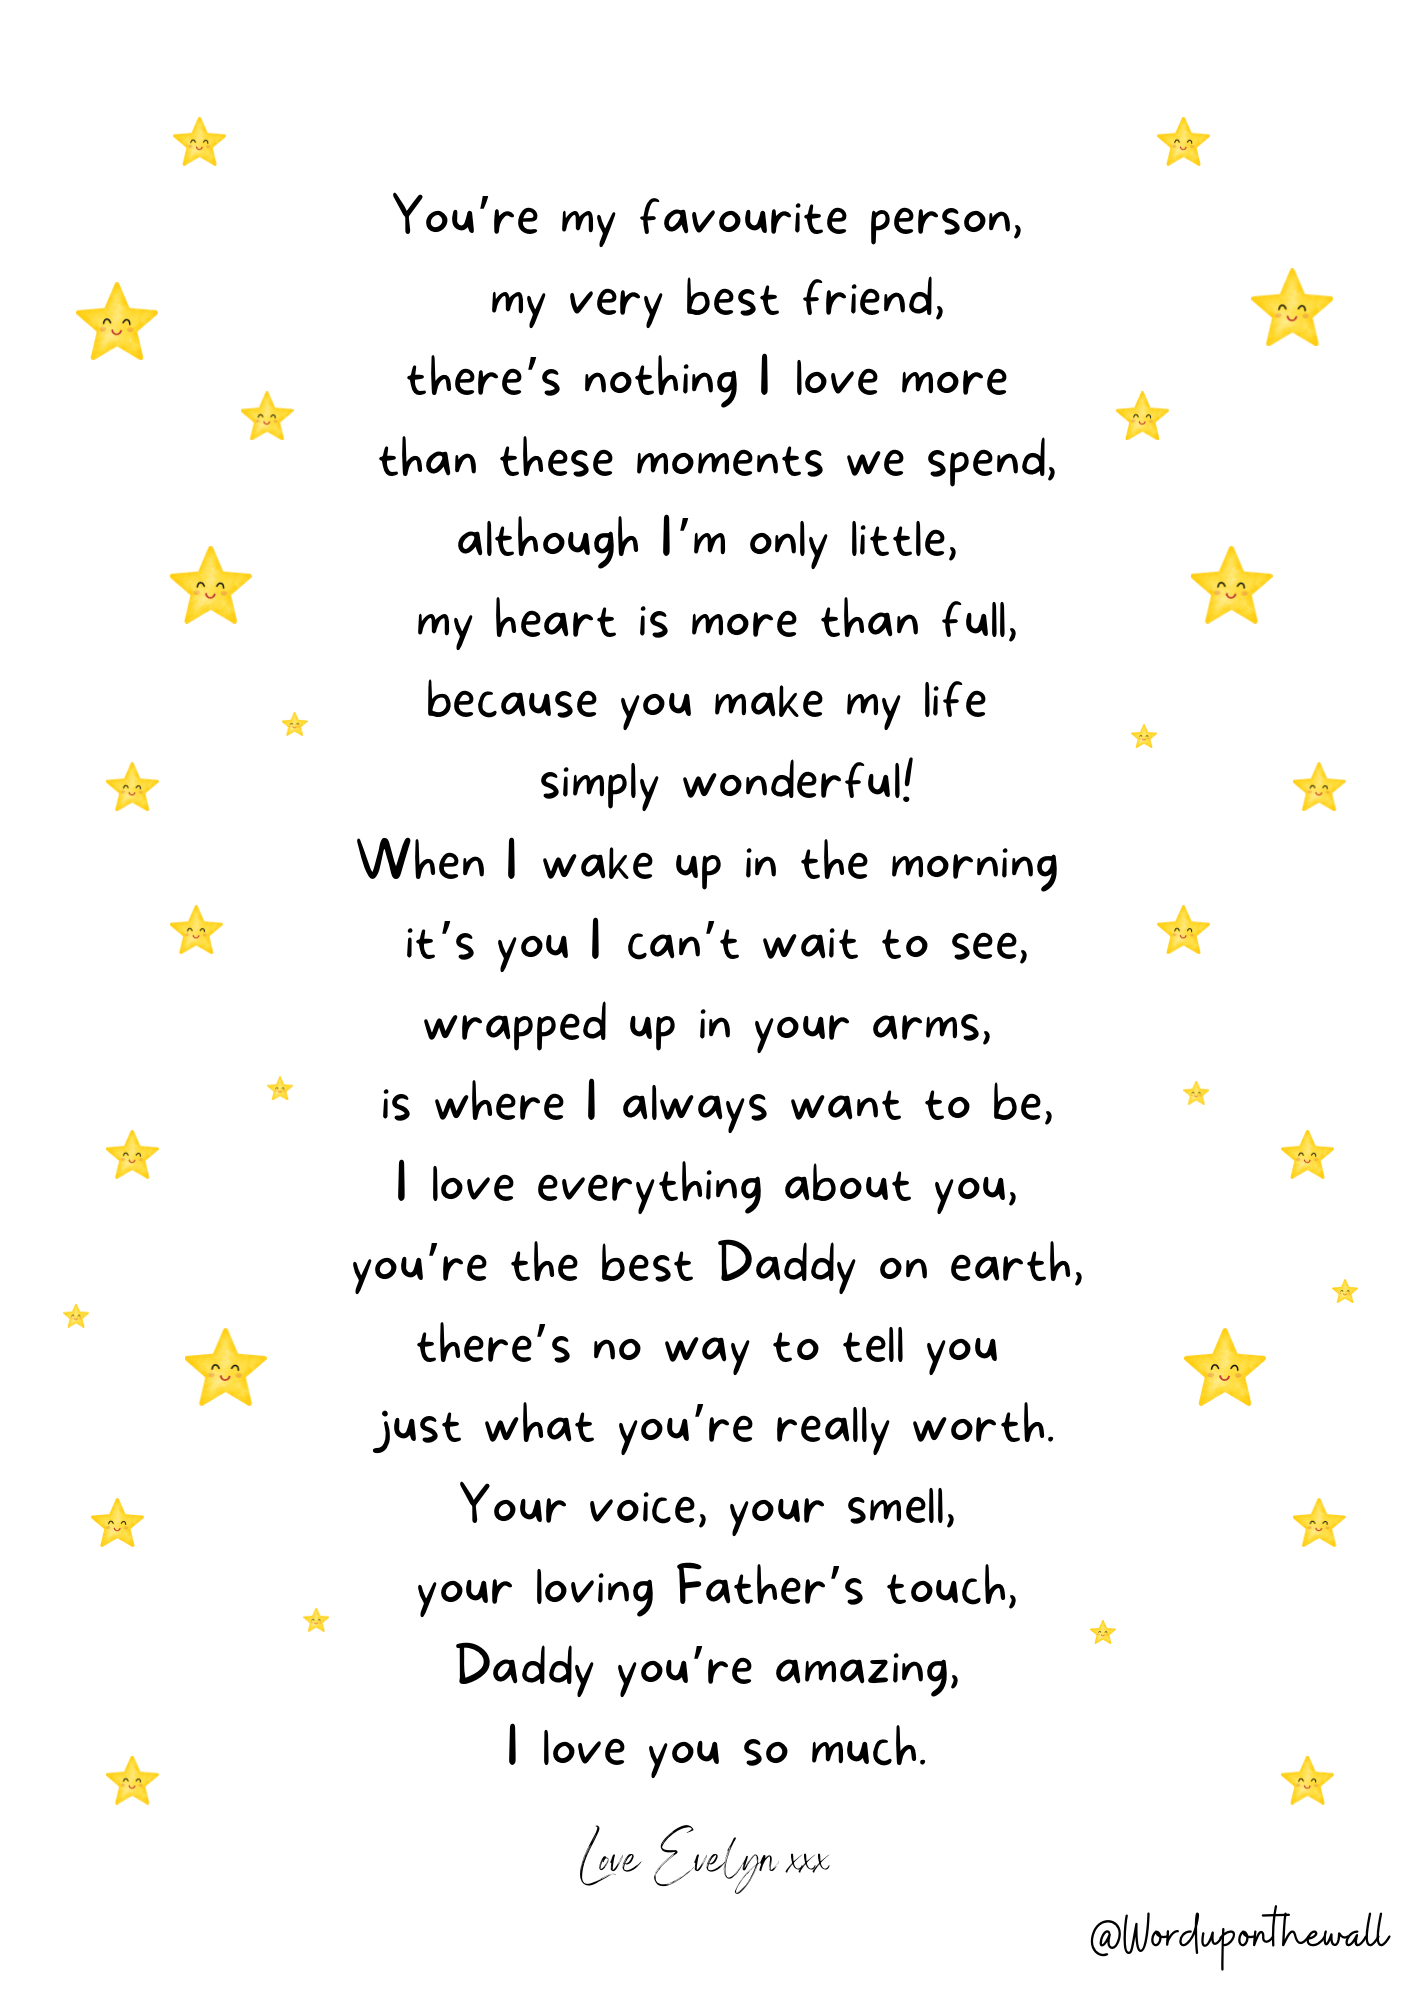 You're my favourite person,
my very best friend,
there's nothing I love more
than these moments we spend,
although I'm only little,
my heart is more than full,
because you make my life
simply wonderful!
When I wake up in the morning
it's you I can't wait to see,
wrapped up in your arms,
is where I always want to be,
I love everything about you,
you're the best Daddy on earth,
there's no way to tell you
just what you're really worth.
Your voice, your smell,
your loving Father's touch,
Daddy you're amazing,
I love you so much.
Love Evelyn xxx
@Worduponthewall